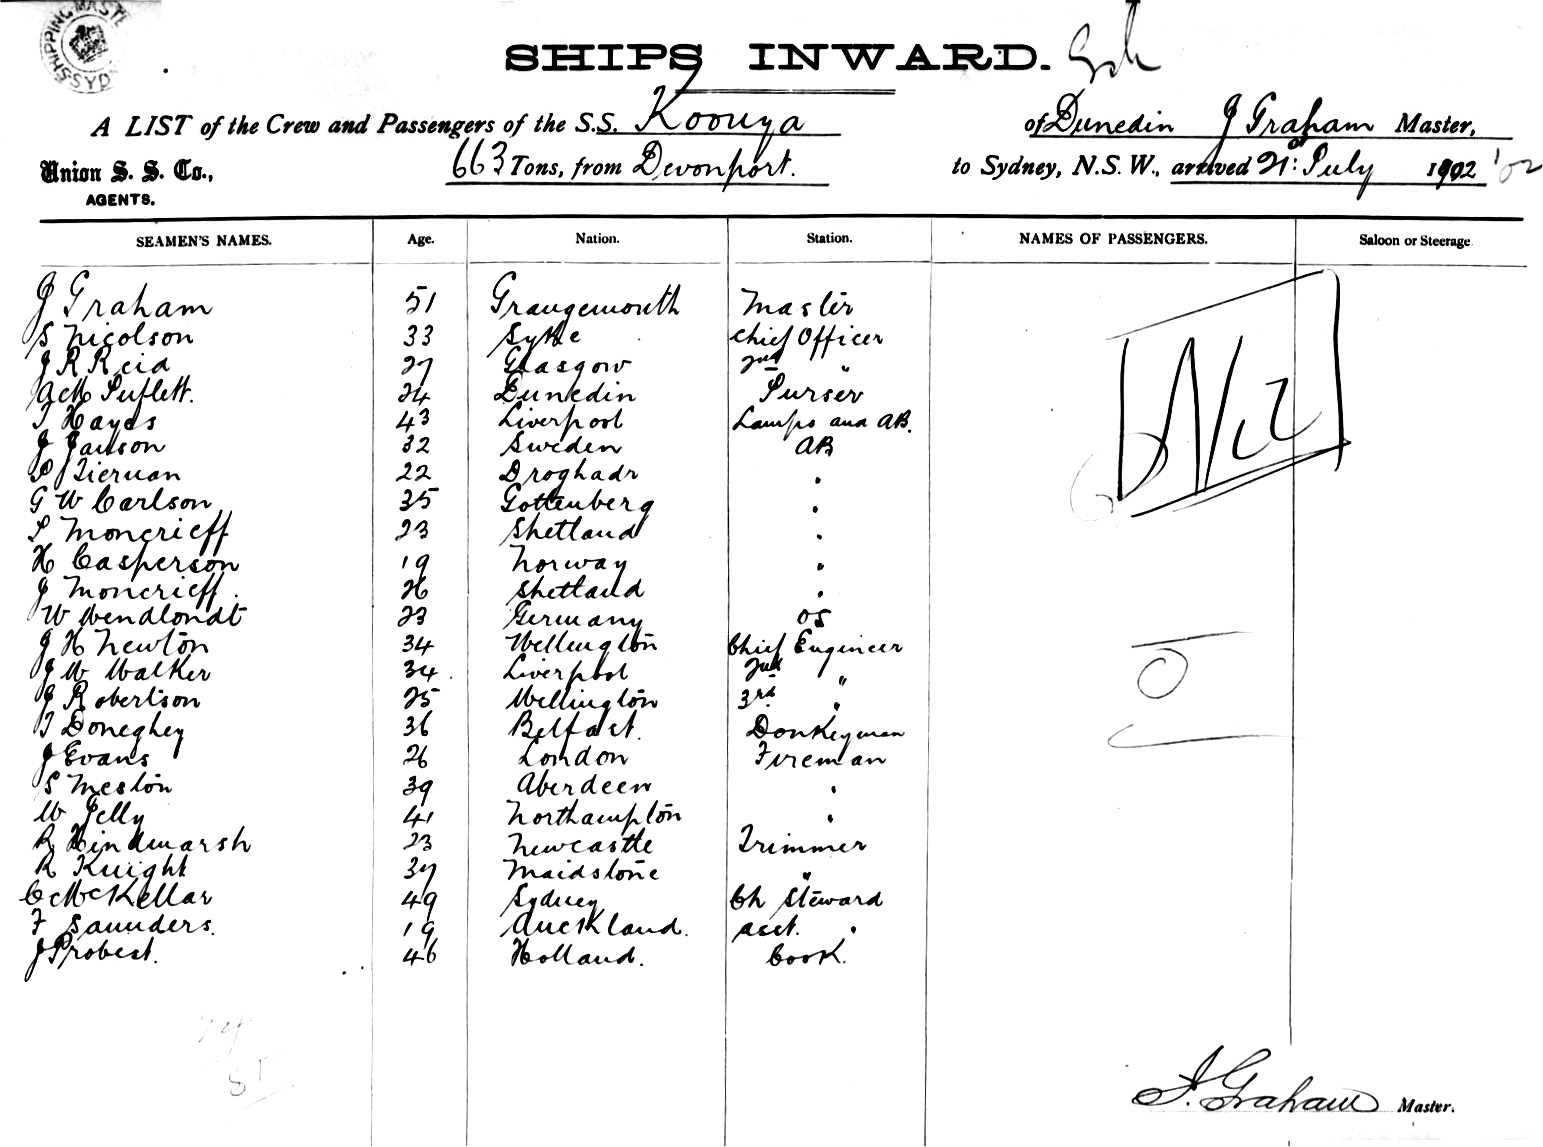 SHIPPING MASTE
SYD
SHIPS INWARD.
A LIST of the Crew and Passengers of the S.S. Koonya of Dunedin J Graham Master,
Union S. S. Co., 663 Tons, from Devonport. to Sydney, N.S.W., arrived 21st July 1902 '02
AGENTS.
SEAMEN'S NAMES. Age. Nation. Station. NAMES OF PASSENGERS. Saloon or Steerage
J Graham 51 Grangemouth Master
S Nicolson 33 Skye Chief Officer
J R Reid 27 Glasgow 2nd "
24 Dunedin Purser
T Hayes 43 Liverpool Lamps and AB.
J Janson 32 Sweden AB
P Tiernan 22 Droghada "
G W Carlson 35 Gottenberg "
P Moncrieff 23 Shetland "
H Casperson 19 Norway "
J Moncrieff 26 Shetland "
W Wendlondt 23 Germany OS
J H Newton 34 Wellington Chief Engineer
J W Walker 34 Liverpool 2nd "
J Robertson 25 Wellington 3rd "
T Doneghey 36 Belfast. Donkeyman
J Evans 26 London Fireman
S Meston 39 Aberdeen "
W Jelly 41 Northampton "
R Hindmarsh 23 Newcastle Trimmer
R Knight 37 Maidstone "
C McKellar 49 Sydney Ch Steward
F Saunders. 19 Auckland. asst. "
J Probest. 46 Holland. Cook.
Nil
J. Graham Master.